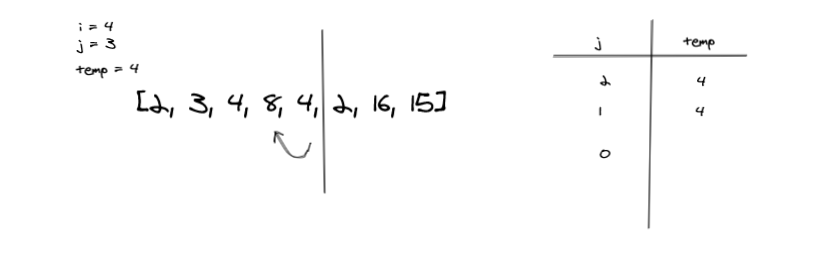 i = 4
j = 3
temp = 4
[2, 3, 4, 8, 4, 2, 16, 15]
j temp
2 4
1 4
0